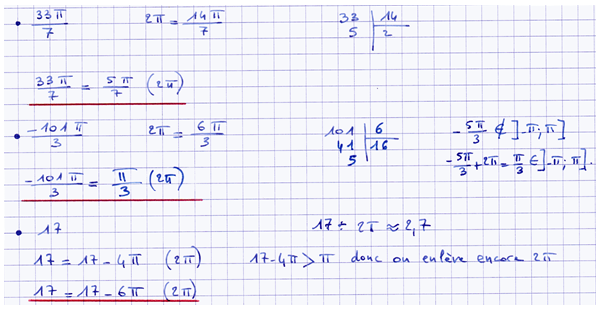 • 33π/7 2π = 14π/7 33 | 14
5 | 2
33π/7 = 5π/7 (2π)
• -101π/3 2π = 6π/3 101 | 6 -5π/3 ∉ ]-π; π]
41 | 16
5 -5π/3 + 2π = π/3 ∈ ]-π; π].
-101π/3 = π/3 (2π)
• 17 17 ÷ 2π ≈ 2,7
17 = 17 - 4π (2π) 17-4π > π donc on enlève encore 2π
17 = 17 - 6π (2π)